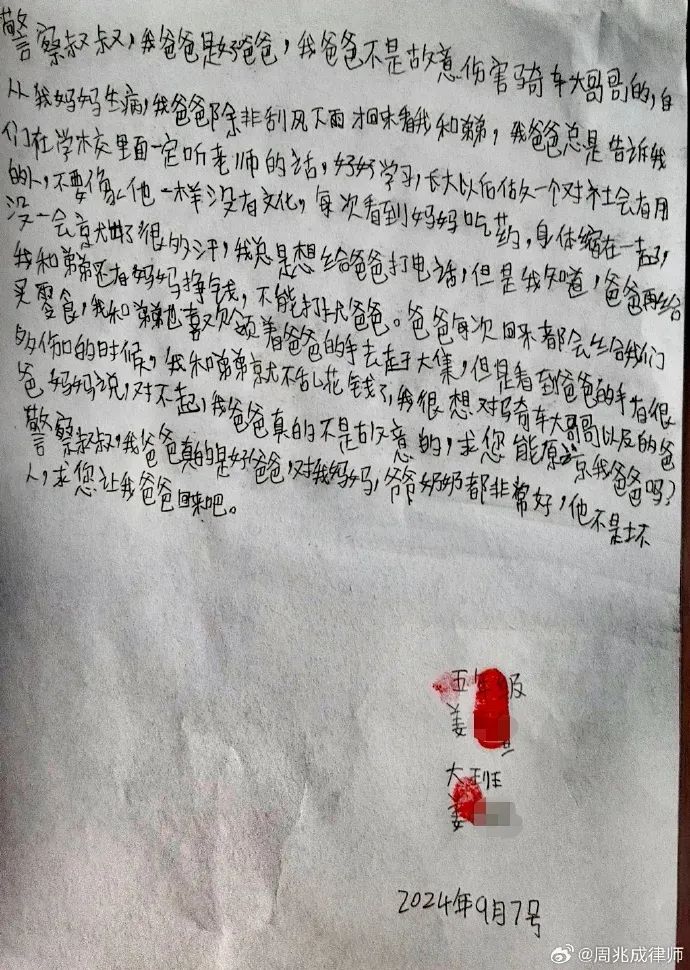 警察叔叔，我爸爸是好爸爸，我爸爸不是故意伤害骑车大哥哥的，自
从我妈妈生病，我爸爸除非刮风下雨才回来看我和弟弟，我爸爸总是告诉我
们在学校里面一定听老师的话，好好学习，长大以后做一个对社会有用
的人，不要像他一样没有文化，每次看到妈妈吃药，身体缩在一起，
没一会就出了很多汗，我总是想给爸爸打电话，但是我知道，爸爸再给
我和弟弟还有妈妈挣钱，不能打扰爸爸。爸爸每次回来都会给我们
买零食，我和弟弟也喜欢领着爸爸的手去赶大集，但是看到爸爸的手有很
多伤口的时候，我和弟弟就不乱花钱了，我很想对骑车大哥哥以后的爸
爸妈妈说，对不起，我爸爸真的不是故意的，求您能原谅我爸爸吗？
警察叔叔，我爸爸真的是好爸爸，对我妈妈，爷爷奶奶都非常好，他不是坏
人，求您让我爸爸回来吧。
五年级
姜
大班
姜
2024年9月7号
@周兆成律师